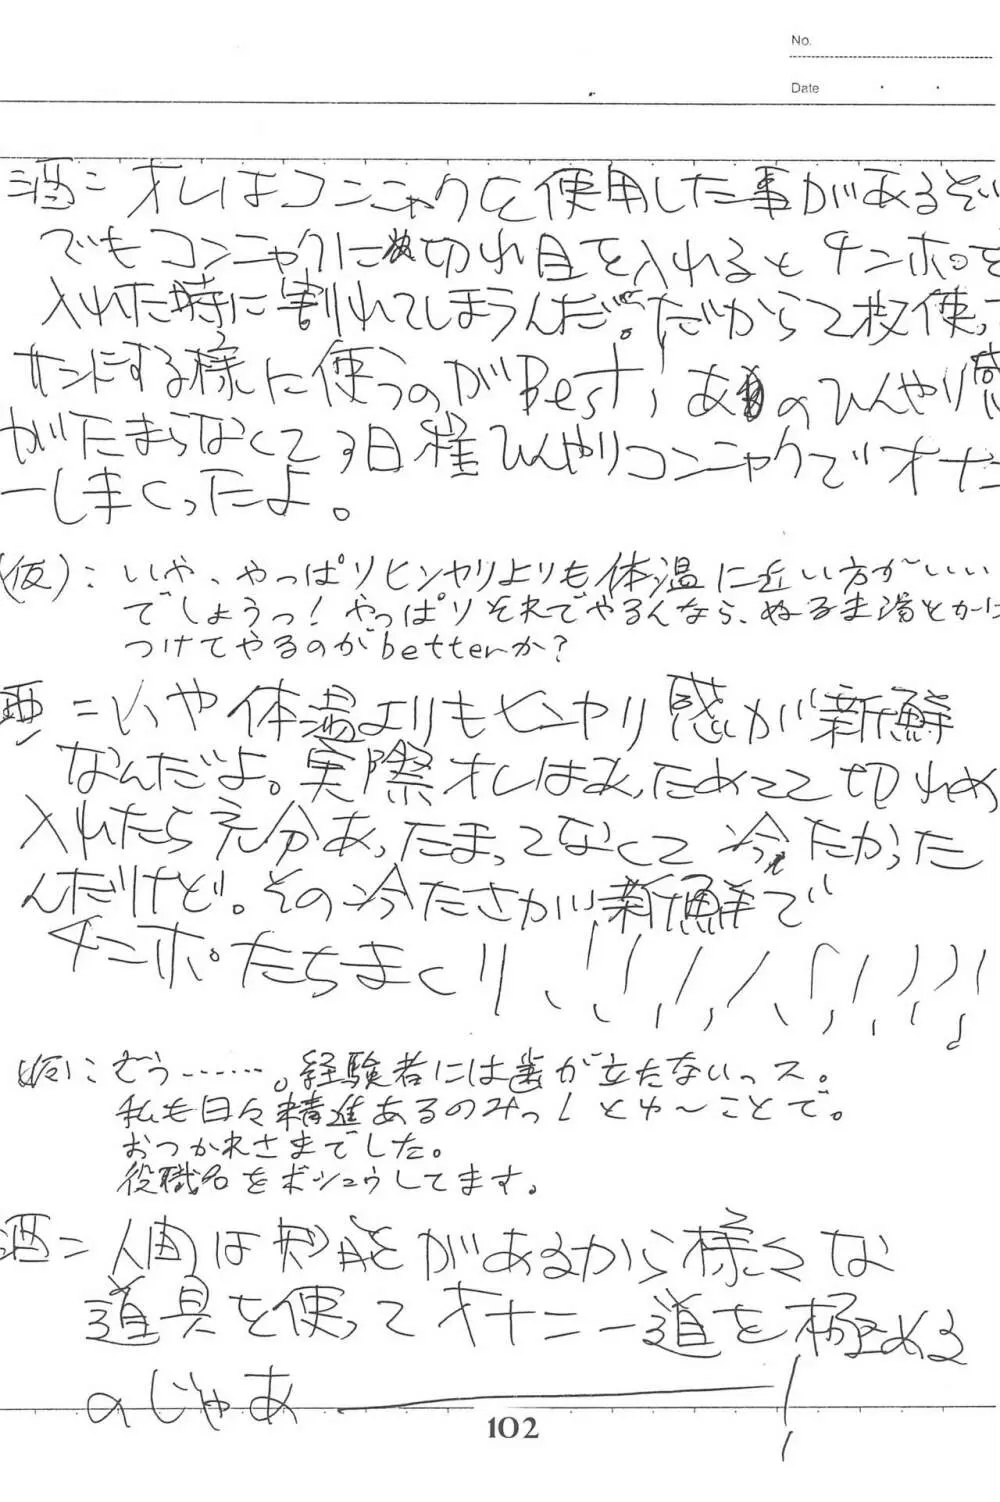 No.
Date
酒＝オレはコンニャクを使用した事があるぞい
でもコンニャクに切れ目を入れるとチンポを
入れた時に割れてしまうんだ。だから2枚使っ
サンドする様に使うのがBest! あのひんやり感
がたまらなくて3日程ひんやりコンニャクでオナニ
ーしまくったよ。
(仮)：いや、やっぱりヒンヤリよりも体温に近い方がいい
でしょうっ！やっぱりそれでやるんなら、ぬるま湯とかに
つけてやるのがbetterか？
酒＝いや体温よりもヒンヤリ感が新鮮
なんだよ。実際オレはあっためてて切れめ
入れたら充分あったまってなくて冷たかった
んだけど。その冷たさが新鮮で
チンポたちまくり!!!!!!!!!!
(仮)：むう……。経験者には歯が立たないっス。
私も日々精進あるのみっ！とゆ〜ことで。
おつかれさまでした。
役職名をボシュウしてます。
酒＝人間は知能があるから様々な
道具を使ってオナニー道を極める
のじゃあ―――！
102